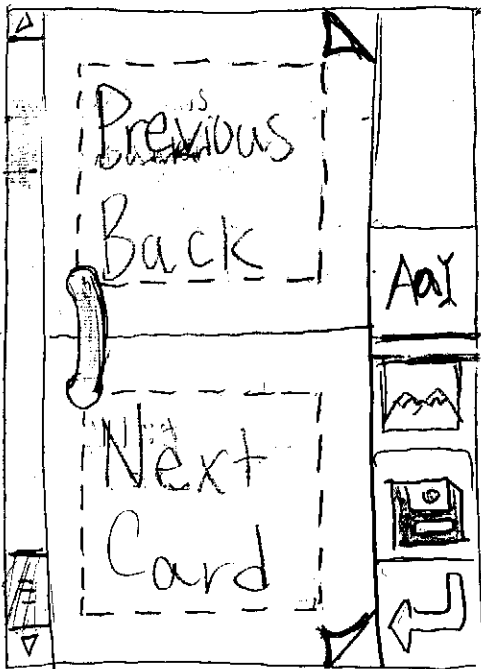 Previous
Back
AaI
Next
Card